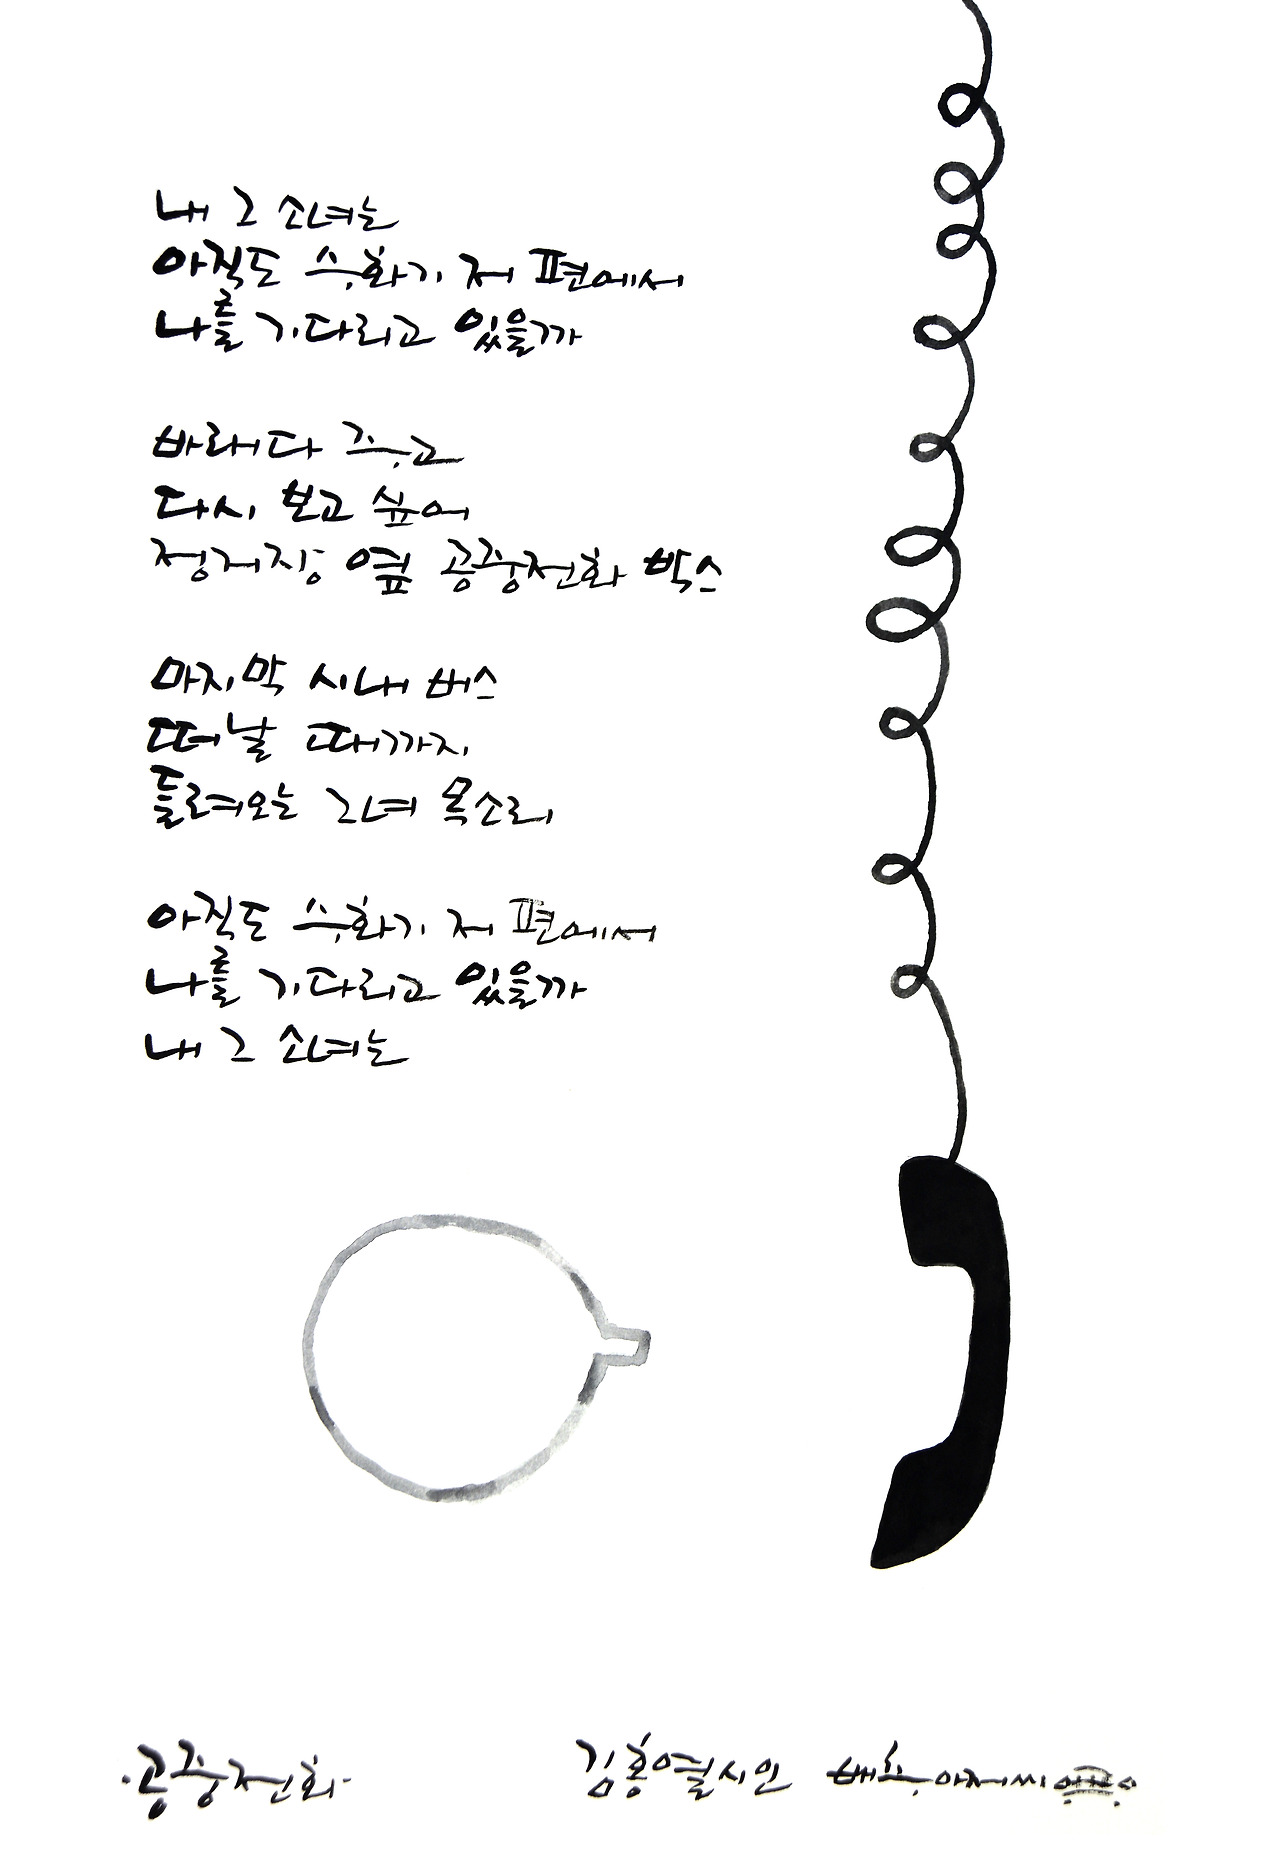 내 그 소녀는
아직도 수화기 저 편에서
나를 기다리고 있을까
바래다 주고
다시 보고 싶어
정거장 옆 공중전화 박스
마지막 시내 버스
떠날 때까지
들려오는 그녀 목소리
아직도 수화기 저 편에서
나를 기다리고 있을까
내 그 소녀는
·공중전화·
김홍열시인 아저씨